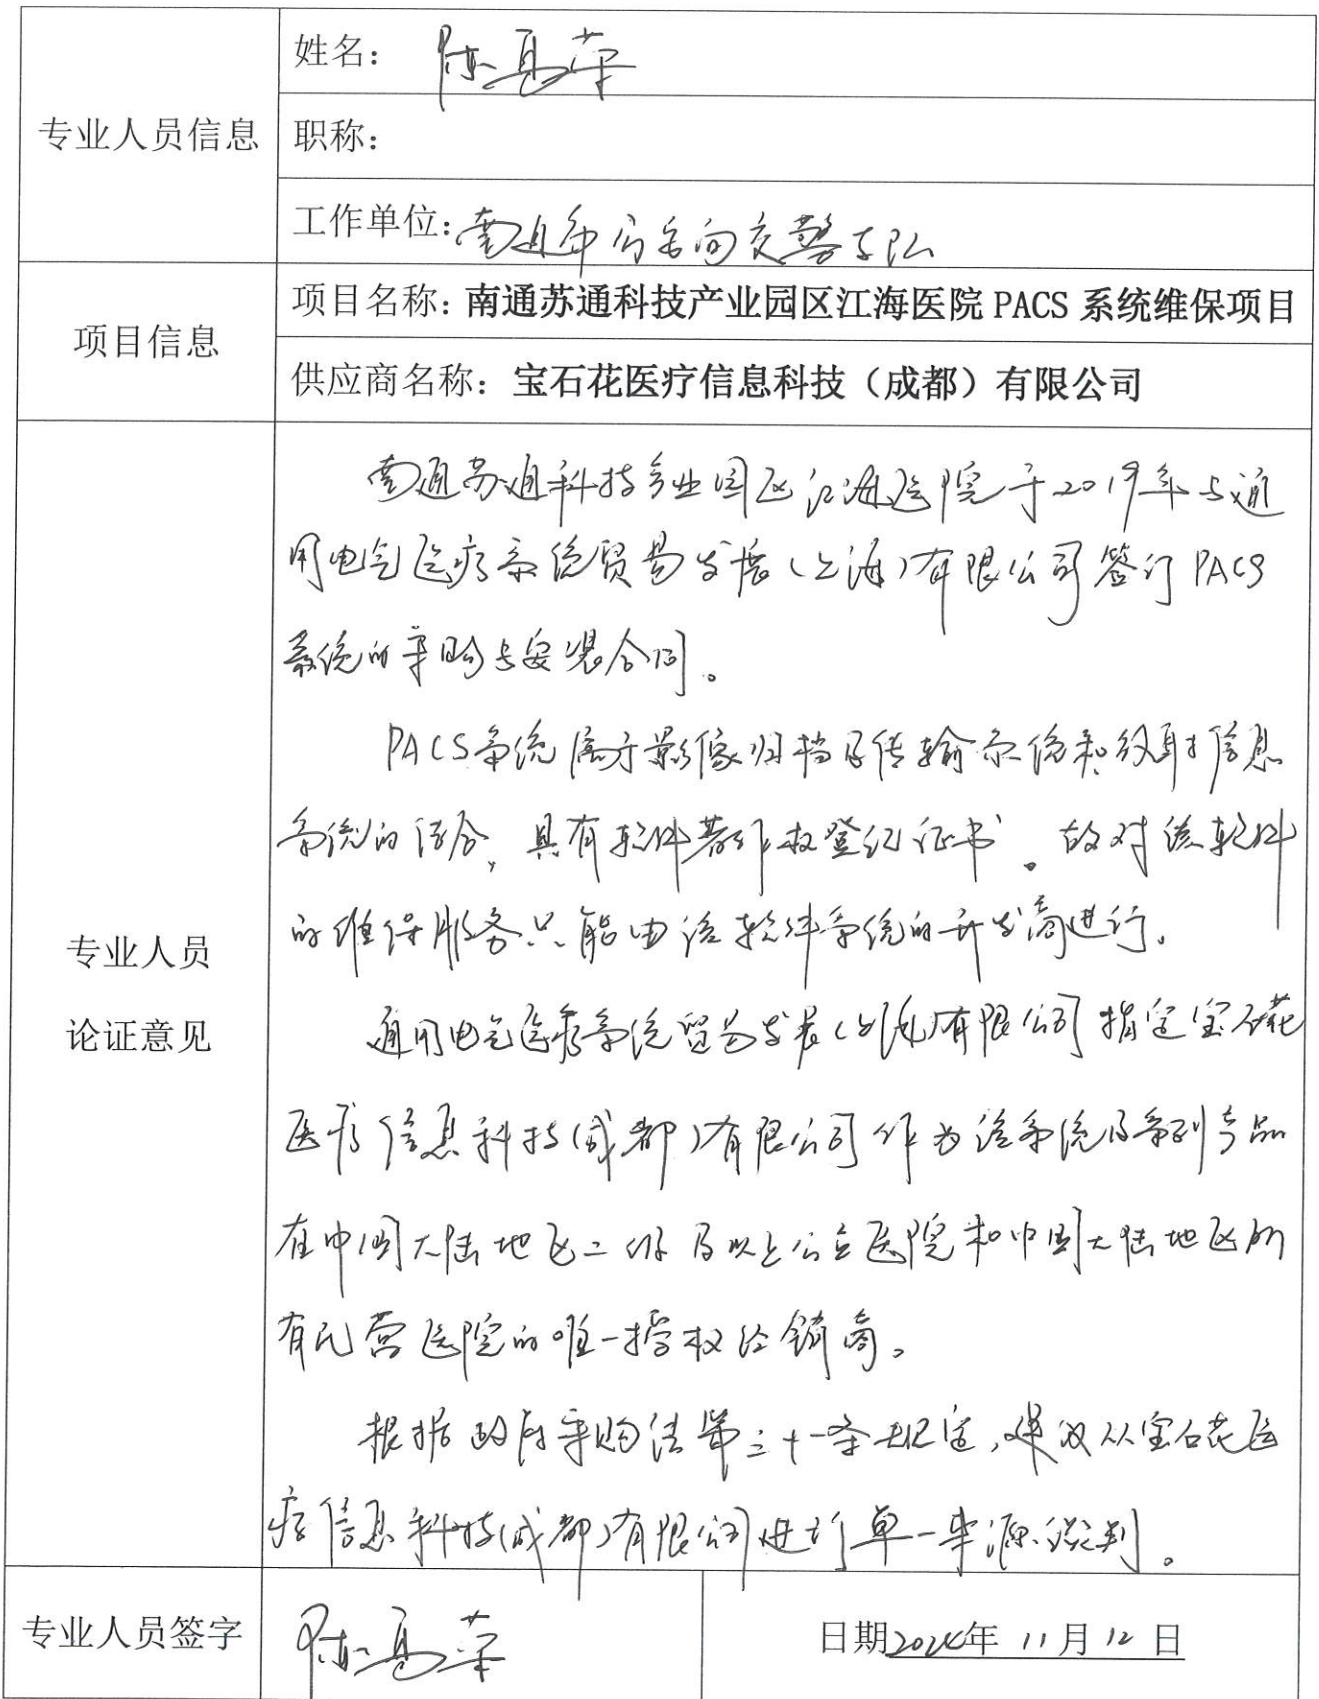 专业人员信息
姓名：陈高荣
职称：
工作单位：南通市公安局交警支队
项目信息
项目名称：南通苏通科技产业园区江海医院 PACS 系统维保项目
供应商名称：宝石花医疗信息科技（成都）有限公司
专业人员
论证意见
南通苏通科技产业园区江海医院于2019年与通
用电气医疗系统贸易发展（上海）有限公司签订PACS
系统的采购与安装合同。
PACS系统属于影像归档及传输系统和放射信息
系统的结合，具有软件著作权登记证书。故对该软件
的维保服务只能由该软件系统的开发商进行。
通用电气医疗系统贸易发展（上海）有限公司指定宝石花
医疗信息科技（成都）有限公司作为该系统及系列产品
在中国大陆地区二级及以上公立医院和中国大陆地区所
有民营医院的唯一授权经销商。
根据政府采购法第三十一条规定，建议从宝石花医
疗信息科技（成都）有限公司进行单一来源谈判。
专业人员签字
陈高荣
日期2024年 11月 12日